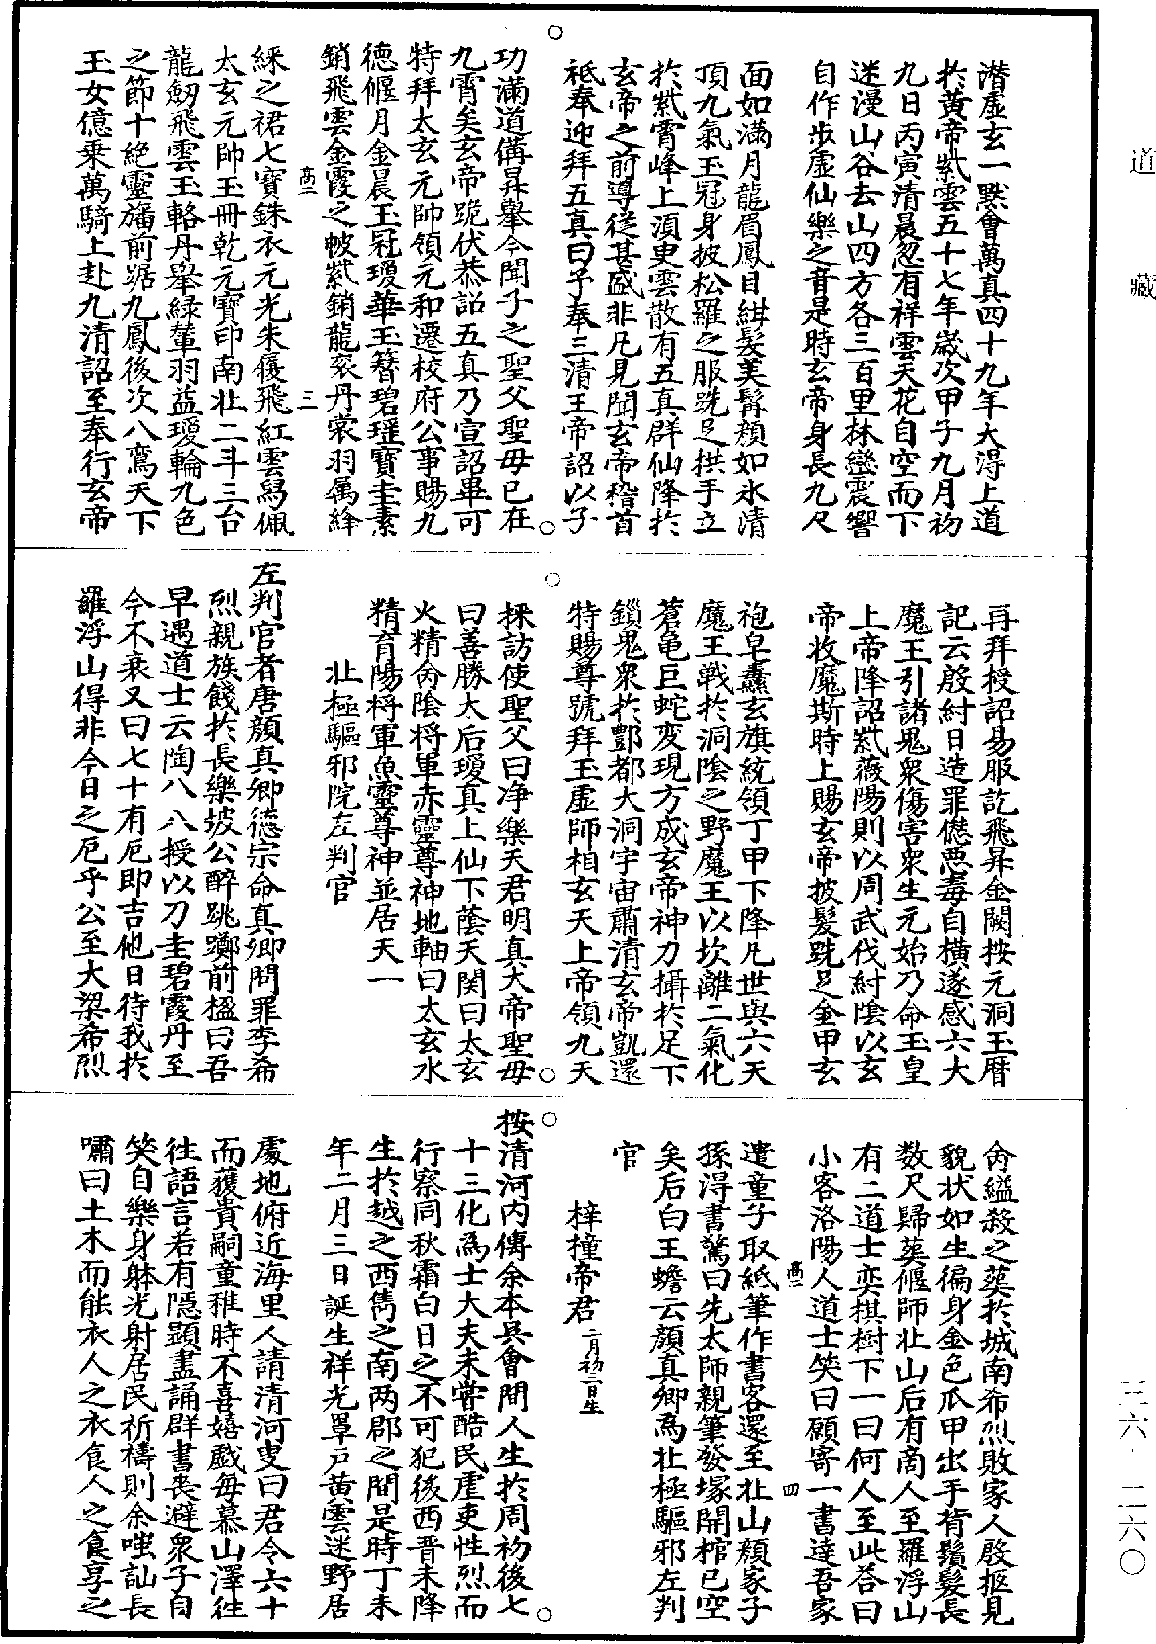 道藏
三六·二六〇
潛虛玄一默會萬真四十九年大得上道
於黃帝紫雲五十七年歲次甲子九月初
九日丙寅清晨忽有祥雲天花自空而下
迷漫山谷去山四方各三百里林巒震響
自作步虛仙樂之音是時玄帝身長九尺
面如滿月龍眉鳳目紺髮美髯顏如氷清
頂九氣玉冠身披松羅之服跣足拱手立
於紫霄峰上湏臾雲散有五真群仙降於
玄帝之前導從甚盛非凡見聞玄帝稽首
祗奉迎拜五真曰予奉三清玉帝詔以子
功滿道備昇舉今聞子之聖父聖母已在
九霄矣玄帝跪伏恭詔五真乃宣詔畢可
特拜太玄元帥領元和遷校府公事賜九
德偃月金晨玉冠瓊華玉簪碧瑶寶圭素
銷飛雲金霞之帔紫銷龍衮丹裳羽属絳
高二
三
綵之裙七寶銖衣元光朱履飛紅雲舄佩
太玄元帥玉冊乾元寶印南北二斗三台
龍劒飛雲玉輅丹轝緑輦羽蓋瓊輪九色
之節十絶靈旛前踞九鳳後次八鸞天下
玉女億乗萬騎上赴九清詔至奉行玄帝
再拜授詔易服訖飛昇金闕按元洞玉曆
記云殷紂日造罪𠎝悪毒自橫遂感六大
魔王引諸鬼衆傷害衆生元始乃命玉皇
上帝降詔紫薇陽則以周武伐紂陰以玄
帝收魔斯時上賜玄帝披髮跣足金甲玄
袍皂纛玄旗統領丁甲下降凡世與六天
魔王戰於洞陰之野魔王以坎離二氣化
蒼龜巨蛇変現方成玄帝神力攝於足下
鎖鬼衆於酆都大洞宇宙肅清玄帝凱還
特賜尊號拜玉虛師相玄天上帝領九天
採訪使聖父曰净樂天君明真大帝聖母
曰善勝太后瓊真上仙下蔭天関曰太玄
火精含陰将軍赤靈尊神地軸曰太玄水
精育陽将軍魚靈尊神並居天一
北極驅邪院左判官
左判官者唐顔真卿德宗命真卿問罪李希
烈親族餞於長樂坡公醉跳躑前楹曰吾
早遇道士云陶八八授以刀圭碧霞丹至
今不衰又曰七十有厄即吉他日待我於
羅浮山得非今日之厄乎公至大梁希烈
命縊殺之葬於城南希烈敗家人啟柩見
貌状如生徧身金色爪甲出手背鬚髮長
数尺歸葬偃師北山后有商人至羅浮山
有二道士奕棋樹下一曰何人至此答曰
小客洛陽人道士笑曰願寄一書達吾家
高二
四
遣童子取紙筆作書客還至北山顔家子
孫得書驚曰先太師親筆發塚開棺已空
矣后白玉蟾云顔真卿為北極驅邪左判
官
梓撞帝君二月初三日生
按清河内傳余本呉會間人生於周初後七
十三化為士大夫未嘗酷民虐吏性烈而
行察同秋霜白日之不可犯後西晋末降
生於越之西雋之南两郡之間是時丁未
年二月三日誕生祥光罩戸黄雲迷野居
處地俯近海里人請清河叟曰君令六十
而獲貴嗣童稚時不喜嬉戲毎慕山澤徃
徃語言若有隠顯盡誦群書喪避衆子自
笑自樂身躰光射居民祈禱則余嗤訕長
嘯曰土木而能衣人之衣食人之食享之